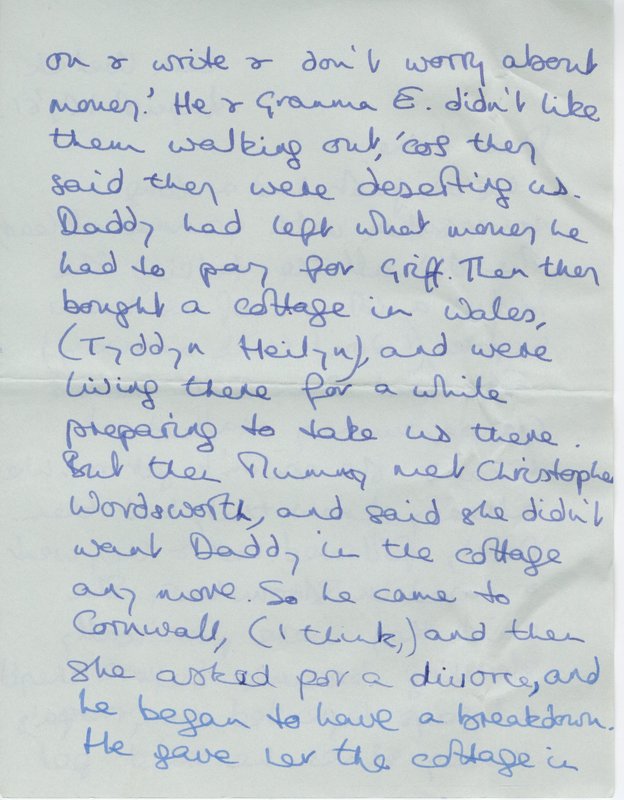 on & write & don't worry about
money.' He & Granma E. didn't like
them walking out, 'cos they
said they were deserting us.
Daddy had left what money he
had to pay for Griff. Then they
bought a cottage in Wales,
(Tyddyn Heilyn), and were
living there for a while
preparing to take us there.
But then Mummy met Christopher
Wordsworth, and said she didn't
want Daddy in the cottage
any more. So he came to
Cornwall, (I think,) and then
she asked for a divorce, and
he began to have a breakdown.
He gave her the cottage in